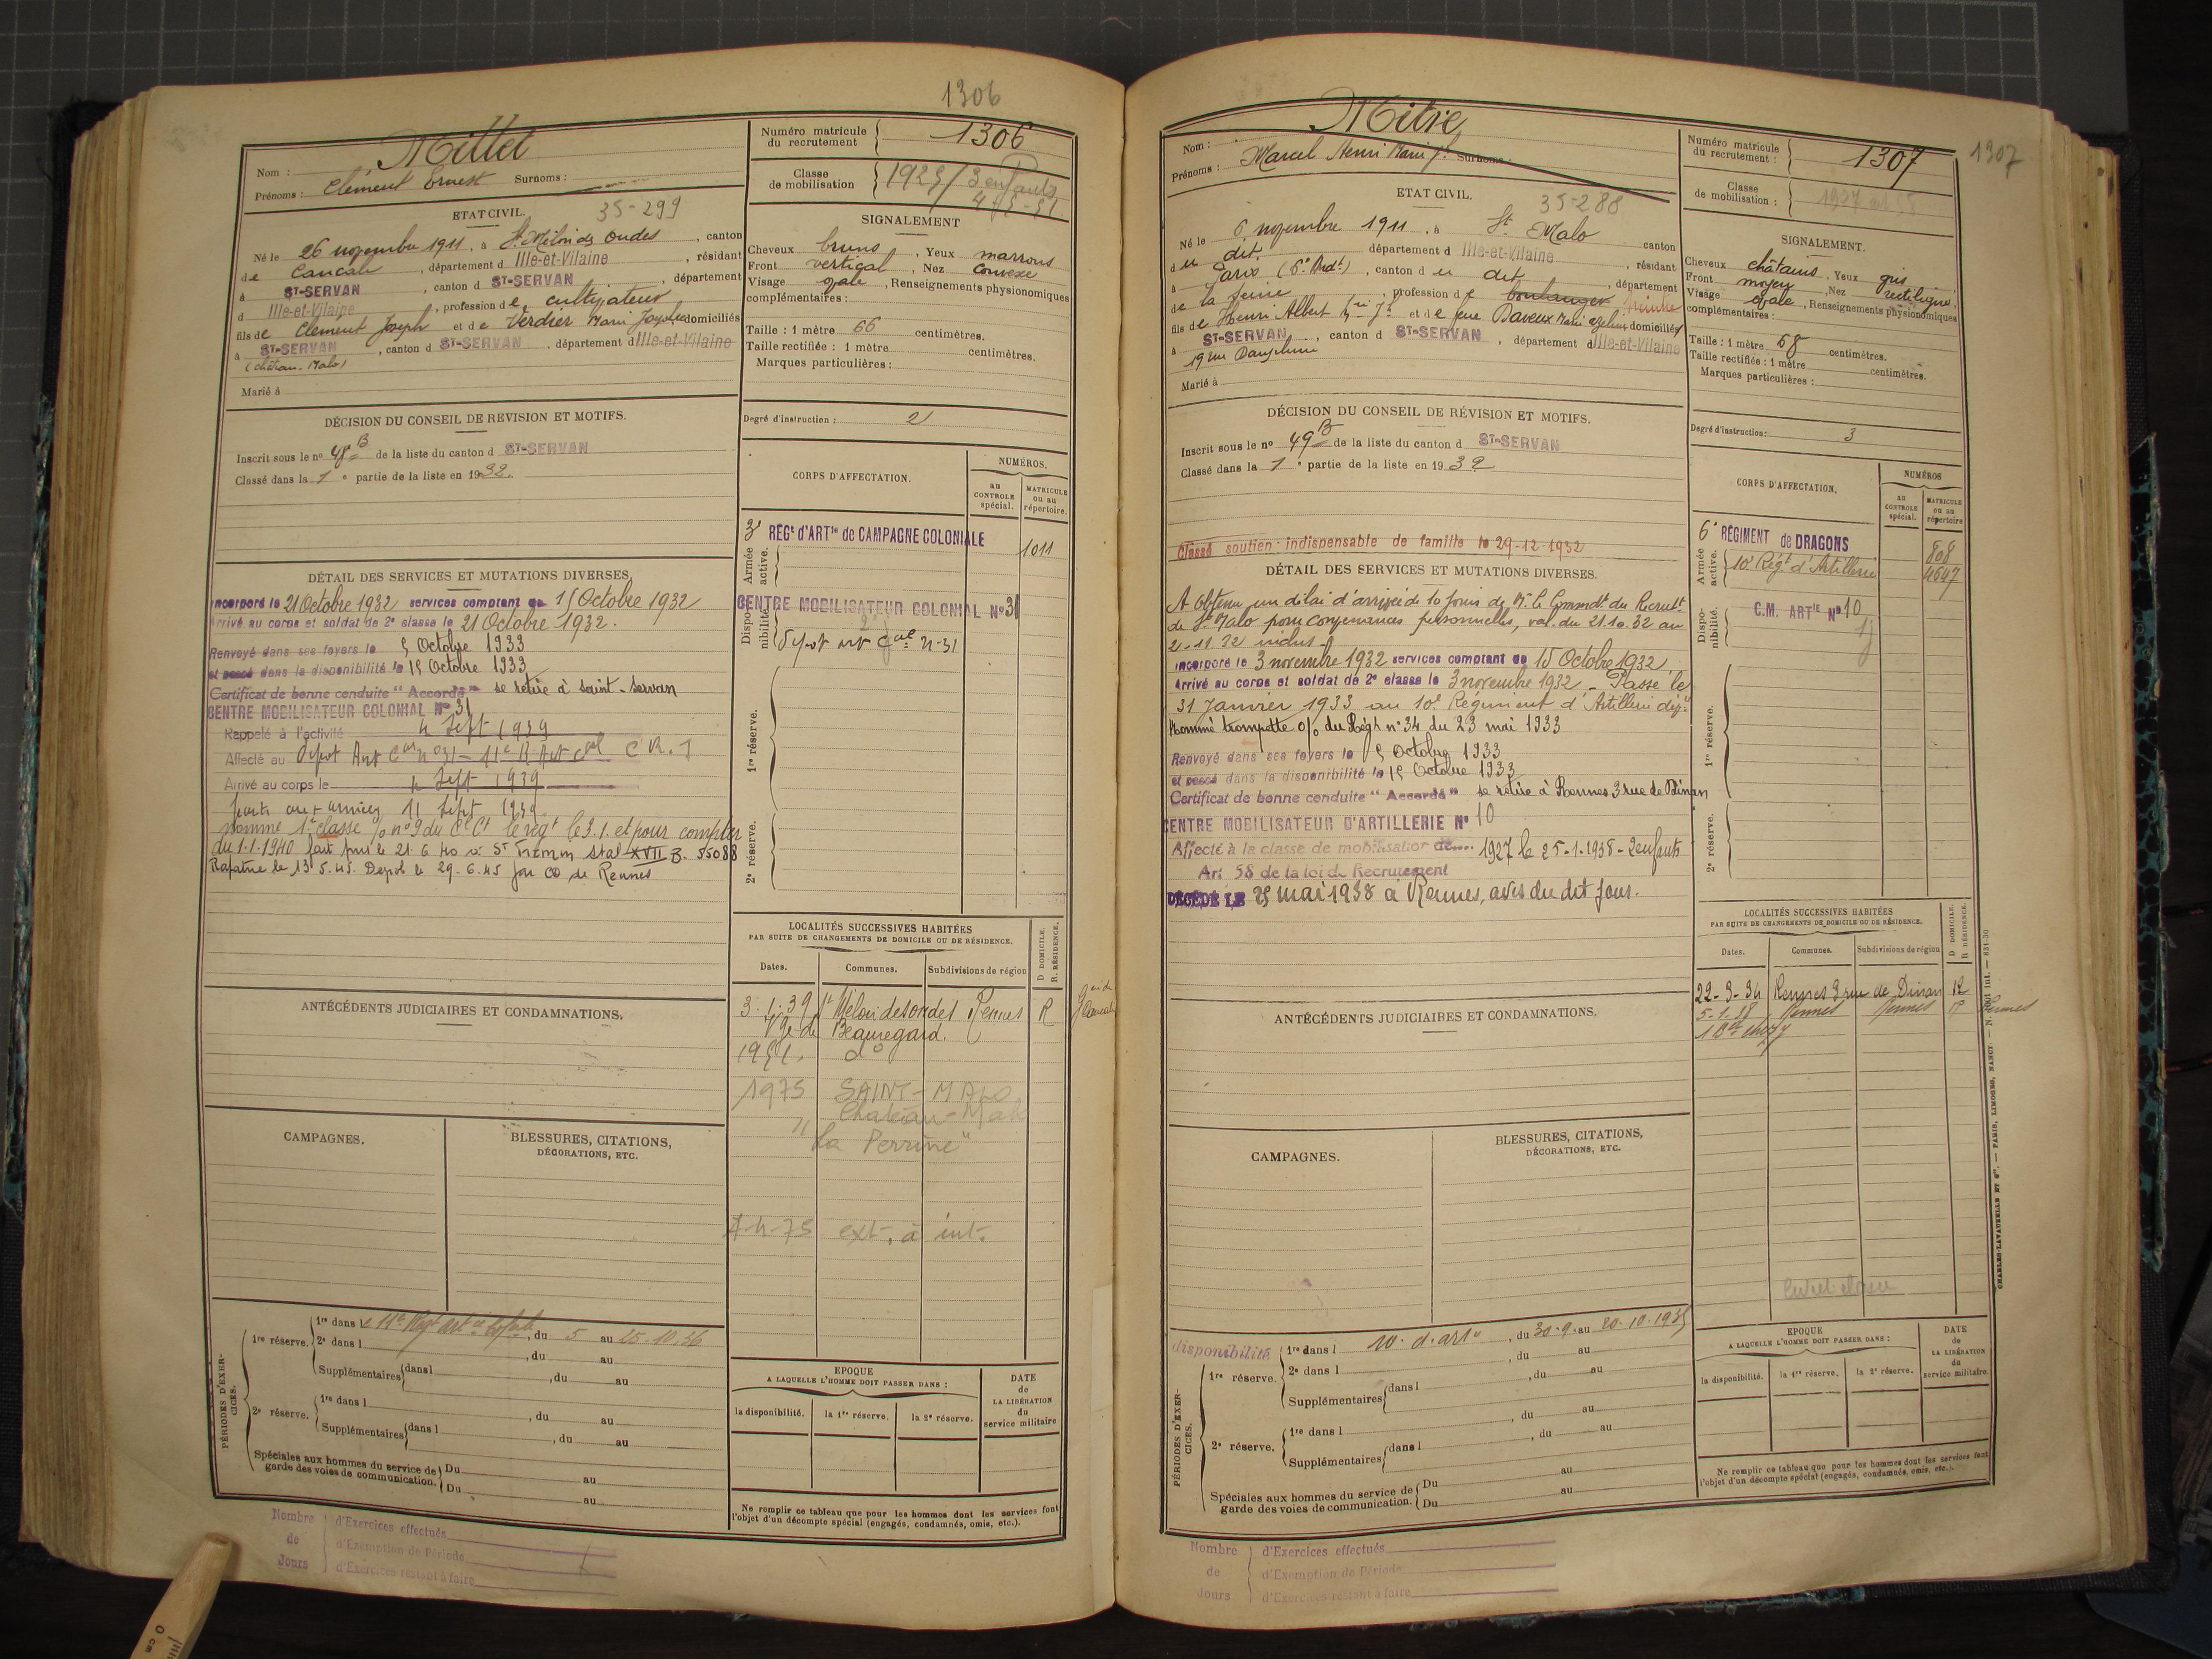 1306
Nom : Millet
Prénoms : Clément Ernest Surnoms :
Numéro matricule du recrutement 1306
Classe de mobilisation 1923 / 3 enfants
ETAT CIVIL. 35-299
Né le 26 novembre 1911, à St Méloir des Ondes, canton
de Cancale, département d Ille-et-Vilaine, résidant
à ST-SERVAN, canton d ST-SERVAN, département
d Ille-et-Vilaine, profession de cultivateur
fils de Clément Joseph et de Verdier Marie domiciliés
à ST-SERVAN, canton d ST-SERVAN, département d Ille-et-Vilaine
(Château-Malo)
Marié à
SIGNALEMENT
Cheveux bruns, Yeux marrons
Front vertical, Nez convexe
Visage ovale, Renseignements physionomiques
complémentaires :
Taille : 1 mètre 66 centimètres.
Taille rectifiée : 1 mètre centimètres.
Marques particulières :
Degré d'instruction : 2
DÉCISION DU CONSEIL DE REVISION ET MOTIFS.
Inscrit sous le no 48 B de la liste du canton d ST-SERVAN
Classé dans la 1e partie de la liste en 1932.
CORPS D'AFFECTATION.
NUMÉROS.
au CONTROLE spécial.
MATRICULE ou au répertoire.
Armée active.
3e RÉGt d'ARTie de CAMPAGNE COLONIALE 1011
Disponibilité.
CENTRE MOBILISATEUR COLONIAL No 31
Dépot art Cale n-31
1re réserve.
2e réserve.
DÉTAIL DES SERVICES ET MUTATIONS DIVERSES.
Incorporé le 21 Octobre 1932 services comptant du 15 Octobre 1932
Arrivé au corps et soldat de 2e classe le 21 Octobre 1932.
Renvoyé dans ses foyers le 5 Octobre 1933
et passé dans la disponibilité le 15 Octobre 1933
Certificat de bonne conduite "Accordé" se retire à Saint-Servan
CENTRE MOBILISATEUR COLONIAL No 31
Rappelé à l'activité 4 Sept 1939
Affecté au Dépot Art Cal n°31 - 11e R Art Cal
Arrivé au corps le 4 Sept 1939
parti aux armées 11 Sept 1939
nommé 1e classe o/o no 9 du le 3.1. et pour compter
du 1-1-1940 fait pris le 21 6 40 à St Firmin Stal XVII B. 55088
Rapatrié le 13.5.45. Démob le 29.6.45 par CD de Rennes
LOCALITÉS SUCCESSIVES HABITÉES
PAR SUITE DE CHANGEMENTS DE DOMICILE OU DE RÉSIDENCE.
Dates. Communes. Subdivisions de région
D DOMICILE. R. RÉSIDENCE.
3.1.39 St Méloir des ondes Rennes R
Vge de Beauregard.
1951. do
1975 SAINT-MALO
Chateau-Malo
"La Perrine"
4-4-75 ext. à int.
ANTÉCÉDENTS JUDICIAIRES ET CONDAMNATIONS.
CAMPAGNES.
BLESSURES, CITATIONS,
DÉCORATIONS, ETC.
PÉRIODES D'EXERCICES.
1re réserve. 1re dans le 11e Régt art, du 5 au 25.10.36
2e dans l, du au
Supplémentaires dans l, du au
2e réserve. 1re dans l, du au
Supplémentaires dans l, du au
Spéciales aux hommes du service de garde des voies de communication. Du au
Du au
EPOQUE
A LAQUELLE L'HOMME DOIT PASSER DANS :
la disponibilité. la 1re réserve. la 2e réserve.
DATE de LA LIBÉRATION du service militaire
Ne remplir ce tableau que pour les hommes dont les services font
l'objet d'un décompte spécial (engagés, condamnés, omis, etc.).
Nombre de Jours
d'Exercices effectués
d'Exemption de Période
d'Exercices restant à faire
0 cm
1307
Nom : Mitre
Prénoms : Marcel Henri Marie Jh Surnoms :
Numéro matricule du recrutement : 1307
Classe de mobilisation : 1927
ETAT CIVIL. 35-288
Né le 6 novembre 1911, à St Malo canton
du dit, département d Ille-et-Vilaine, résidant
à Paris (6e Ardt), canton d u dit, département
de la Seine, profession de boulanger peintre
fils de Henri Albert et de feue Daveux Marie domiciliés
à ST-SERVAN, canton d ST-SERVAN, département d Ille-et-Vilaine
19 rue Dauphine
Marié à
SIGNALEMENT.
Cheveux châtains, Yeux gris
Front moyen, Nez rectiligne
Visage ovale, Renseignements physionomiques
complémentaires :
Taille : 1 mètre 68 centimètres.
Taille rectifiée : 1 mètre centimètres.
Marques particulières :
Degré d'instruction : 3
DÉCISION DU CONSEIL DE RÉVISION ET MOTIFS.
Inscrit sous le no 49 B de la liste du canton d ST-SERVAN
Classé dans la 1e partie de la liste en 1932
Classé soutien indispensable de famille le 29-12-1932
CORPS D'AFFECTATION.
NUMÉROS
au CONTROLE spécial.
MATRICULE ou au répertoire
Armée active.
6e RÉGIMENT de DRAGONS 808
10e Régt d'Artillerie 4647
Disponibilité.
C.M. ARTie No 10
1re réserve.
2e réserve.
DÉTAIL DES SERVICES ET MUTATIONS DIVERSES.
A obtenu un délai d'arrivée de 10 jours de Mr le Commdt du Recrutt
de St Malo pour convenances personnelles, val. du 21.10.32 au
2-11 32 inclus
Incorporé le 3 novembre 1932 services comptant du 15 Octobre 1932
Arrivé au corps et soldat de 2e classe le 3 novembre 1932 - Passé le
31 Janvier 1933 au 10e Régiment d'Artillerie
Nommé trompette o/o du Régt no 34 du 23 mai 1933
Renvoyé dans ses foyers le 5 Octobre 1933
et passé dans la disponibilité le 15 Octobre 1933
Certificat de bonne conduite "Accordé" se retire à Rennes 3 rue de Dinan
CENTRE MOBILISATEUR D'ARTILLERIE No 10
Affecté à la classe de mobilisation de 1927 le 25-1-1938 - 2 enfants
Art 58 de la loi de Recrutement
DÉCÉDÉ LE 25 mai 1938 à Rennes, avis du dit jour.
LOCALITÉS SUCCESSIVES HABITÉES
PAR SUITE DE CHANGEMENTS DE DOMICILE OU DE RÉSIDENCE.
Dates. Communes. Subdivisions de région
D DOMICILE R. RÉSIDENCE.
22-3-34 Rennes 3 rue de Dinan R
5-1-38 Rennes Rennes R Rennes
ANTÉCÉDENTS JUDICIAIRES ET CONDAMNATIONS.
CAMPAGNES.
BLESSURES, CITATIONS,
DÉCORATIONS, ETC.
PÉRIODES D'EXERCICES.
disponibilité 1re dans l 10e d'artie, du 30.9 au 20.10.1935
1re réserve. 2e dans l, du au
Supplémentaires dans l, du au
2e réserve. 1re dans l, du au
Supplémentaires dans l, du au
Spéciales aux hommes du service de garde des voies de communication. Du au
Du au
EPOQUE
A LAQUELLE L'HOMME DOIT PASSER DANS :
la disponibilité. la 1re réserve. la 2e réserve.
DATE de LA LIBÉRATION du service militaire.
Ne remplir ce tableau que pour les hommes dont les services font
l'objet d'un décompte spécial (engagés, condamnés, omis, etc.).
CHARLES-LAVAUZELLE ET Cie. — PARIS, LIMOGES, NANCY
Nombre de Jours
d'Exercices effectués
d'Exemption de Période
d'Exercices restant à faire